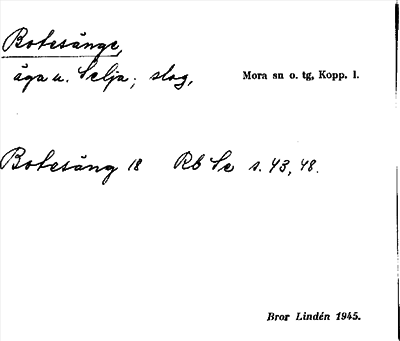 Botesänge,
äga u. Selja; slog, Mora sn o. tg, Kopp. l.
Botesäng 18 Rb Se s. 43, 48.
Bror Lindén 1945.